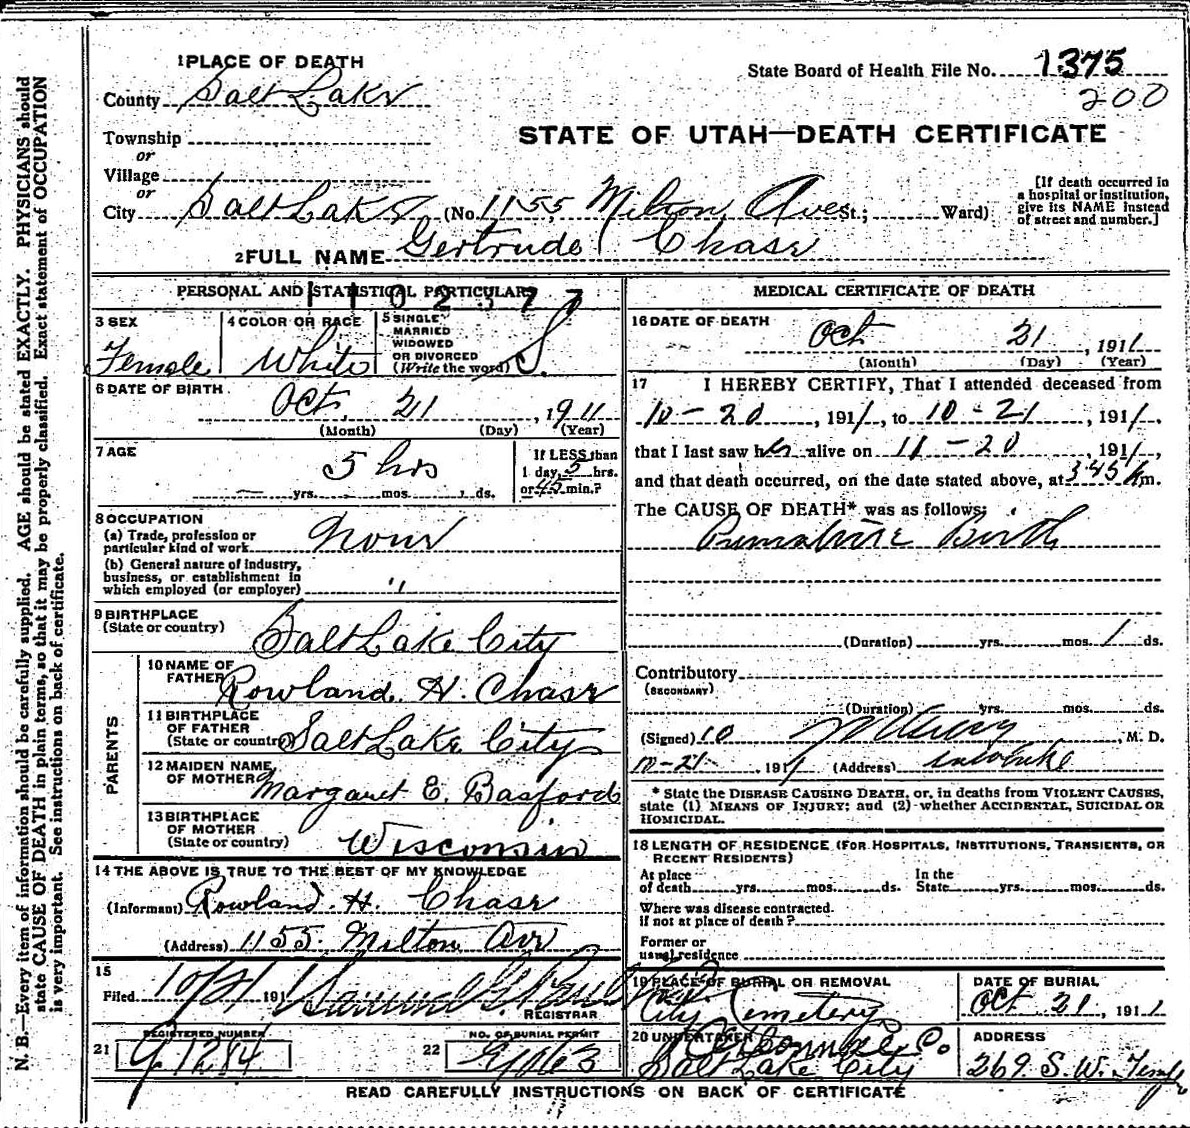 1 PLACE OF DEATH
County Salt Lake
Township
or
Village
or
City Salt Lake (No. 1155 Milton Ave St.; Ward)
State Board of Health File No. 1375
200
STATE OF UTAH—DEATH CERTIFICATE
[If death occurred in
a hospital or institution,
give its NAME instead
of street and number.]
2 FULL NAME Gertrude Chase
PERSONAL AND STATISTICAL PARTICULARS
1102377
3 SEX
Female
4 COLOR OR RACE
White
5 SINGLE
MARRIED
WIDOWED
OR DIVORCED
(Write the word) S.
6 DATE OF BIRTH
Oct. 21, 1911
(Month) (Day) (Year)
7 AGE
5 hrs
yrs. mos. ds.
If LESS than
1 day, 5 hrs.
or 45 min.?
8 OCCUPATION
(a) Trade, profession or
particular kind of work None
(b) General nature of industry,
business, or establishment in
which employed (or employer) "
9 BIRTHPLACE
(State or country) Salt Lake City
PARENTS
10 NAME OF
FATHER Rowland H. Chase
11 BIRTHPLACE
OF FATHER
(State or country) Salt Lake City
12 MAIDEN NAME
OF MOTHER Margaret E. Basford
13 BIRTHPLACE
OF MOTHER
(State or country) Wisconsin
14 THE ABOVE IS TRUE TO THE BEST OF MY KNOWLEDGE
(Informant) Rowland H. Chase
(Address) 1155 Milton Ave
15
Filed 10/21 191
REGISTRAR
REGISTERED NUMBER
21
NO. OF BURIAL PERMIT
22
MEDICAL CERTIFICATE OF DEATH
16 DATE OF DEATH
Oct 21, 1911
(Month) (Day) (Year)
17 I HEREBY CERTIFY, That I attended deceased from
10-20, 1911, to 10-21, 1911,
that I last saw her alive on 11-20, 1911,
and that death occurred, on the date stated above, at 345 m.
The CAUSE OF DEATH* was as follows:
Premature Birth
(Duration) yrs. mos. 1 ds.
Contributory
(SECONDARY)
(Duration) yrs. mos. ds.
(Signed) M. D.
10-21, 191 (Address)
* State the DISEASE CAUSING DEATH, or, in deaths from VIOLENT CAUSES,
state (1) MEANS OF INJURY; and (2) whether ACCIDENTAL, SUICIDAL OR
HOMICIDAL.
18 LENGTH OF RESIDENCE (FOR HOSPITALS, INSTITUTIONS, TRANSIENTS, OR
RECENT RESIDENTS)
At place
of death yrs. mos. ds.
In the
State yrs. mos. ds.
Where was disease contracted.
if not at place of death?
Former or
usual residence
19 PLACE OF BURIAL OR REMOVAL
City Cemetery
DATE OF BURIAL
Oct 21, 1911
20 UNDERTAKER
Salt Lake City
ADDRESS
269 S. W. Temple
READ CAREFULLY INSTRUCTIONS ON BACK OF CERTIFICATE
N. B.—Every item of information should be carefully supplied. AGE should be stated EXACTLY. PHYSICIANS should
state CAUSE OF DEATH in plain terms, so that it may be properly classified. Exact statement of OCCUPATION
is very important. See instructions on back of certificate.